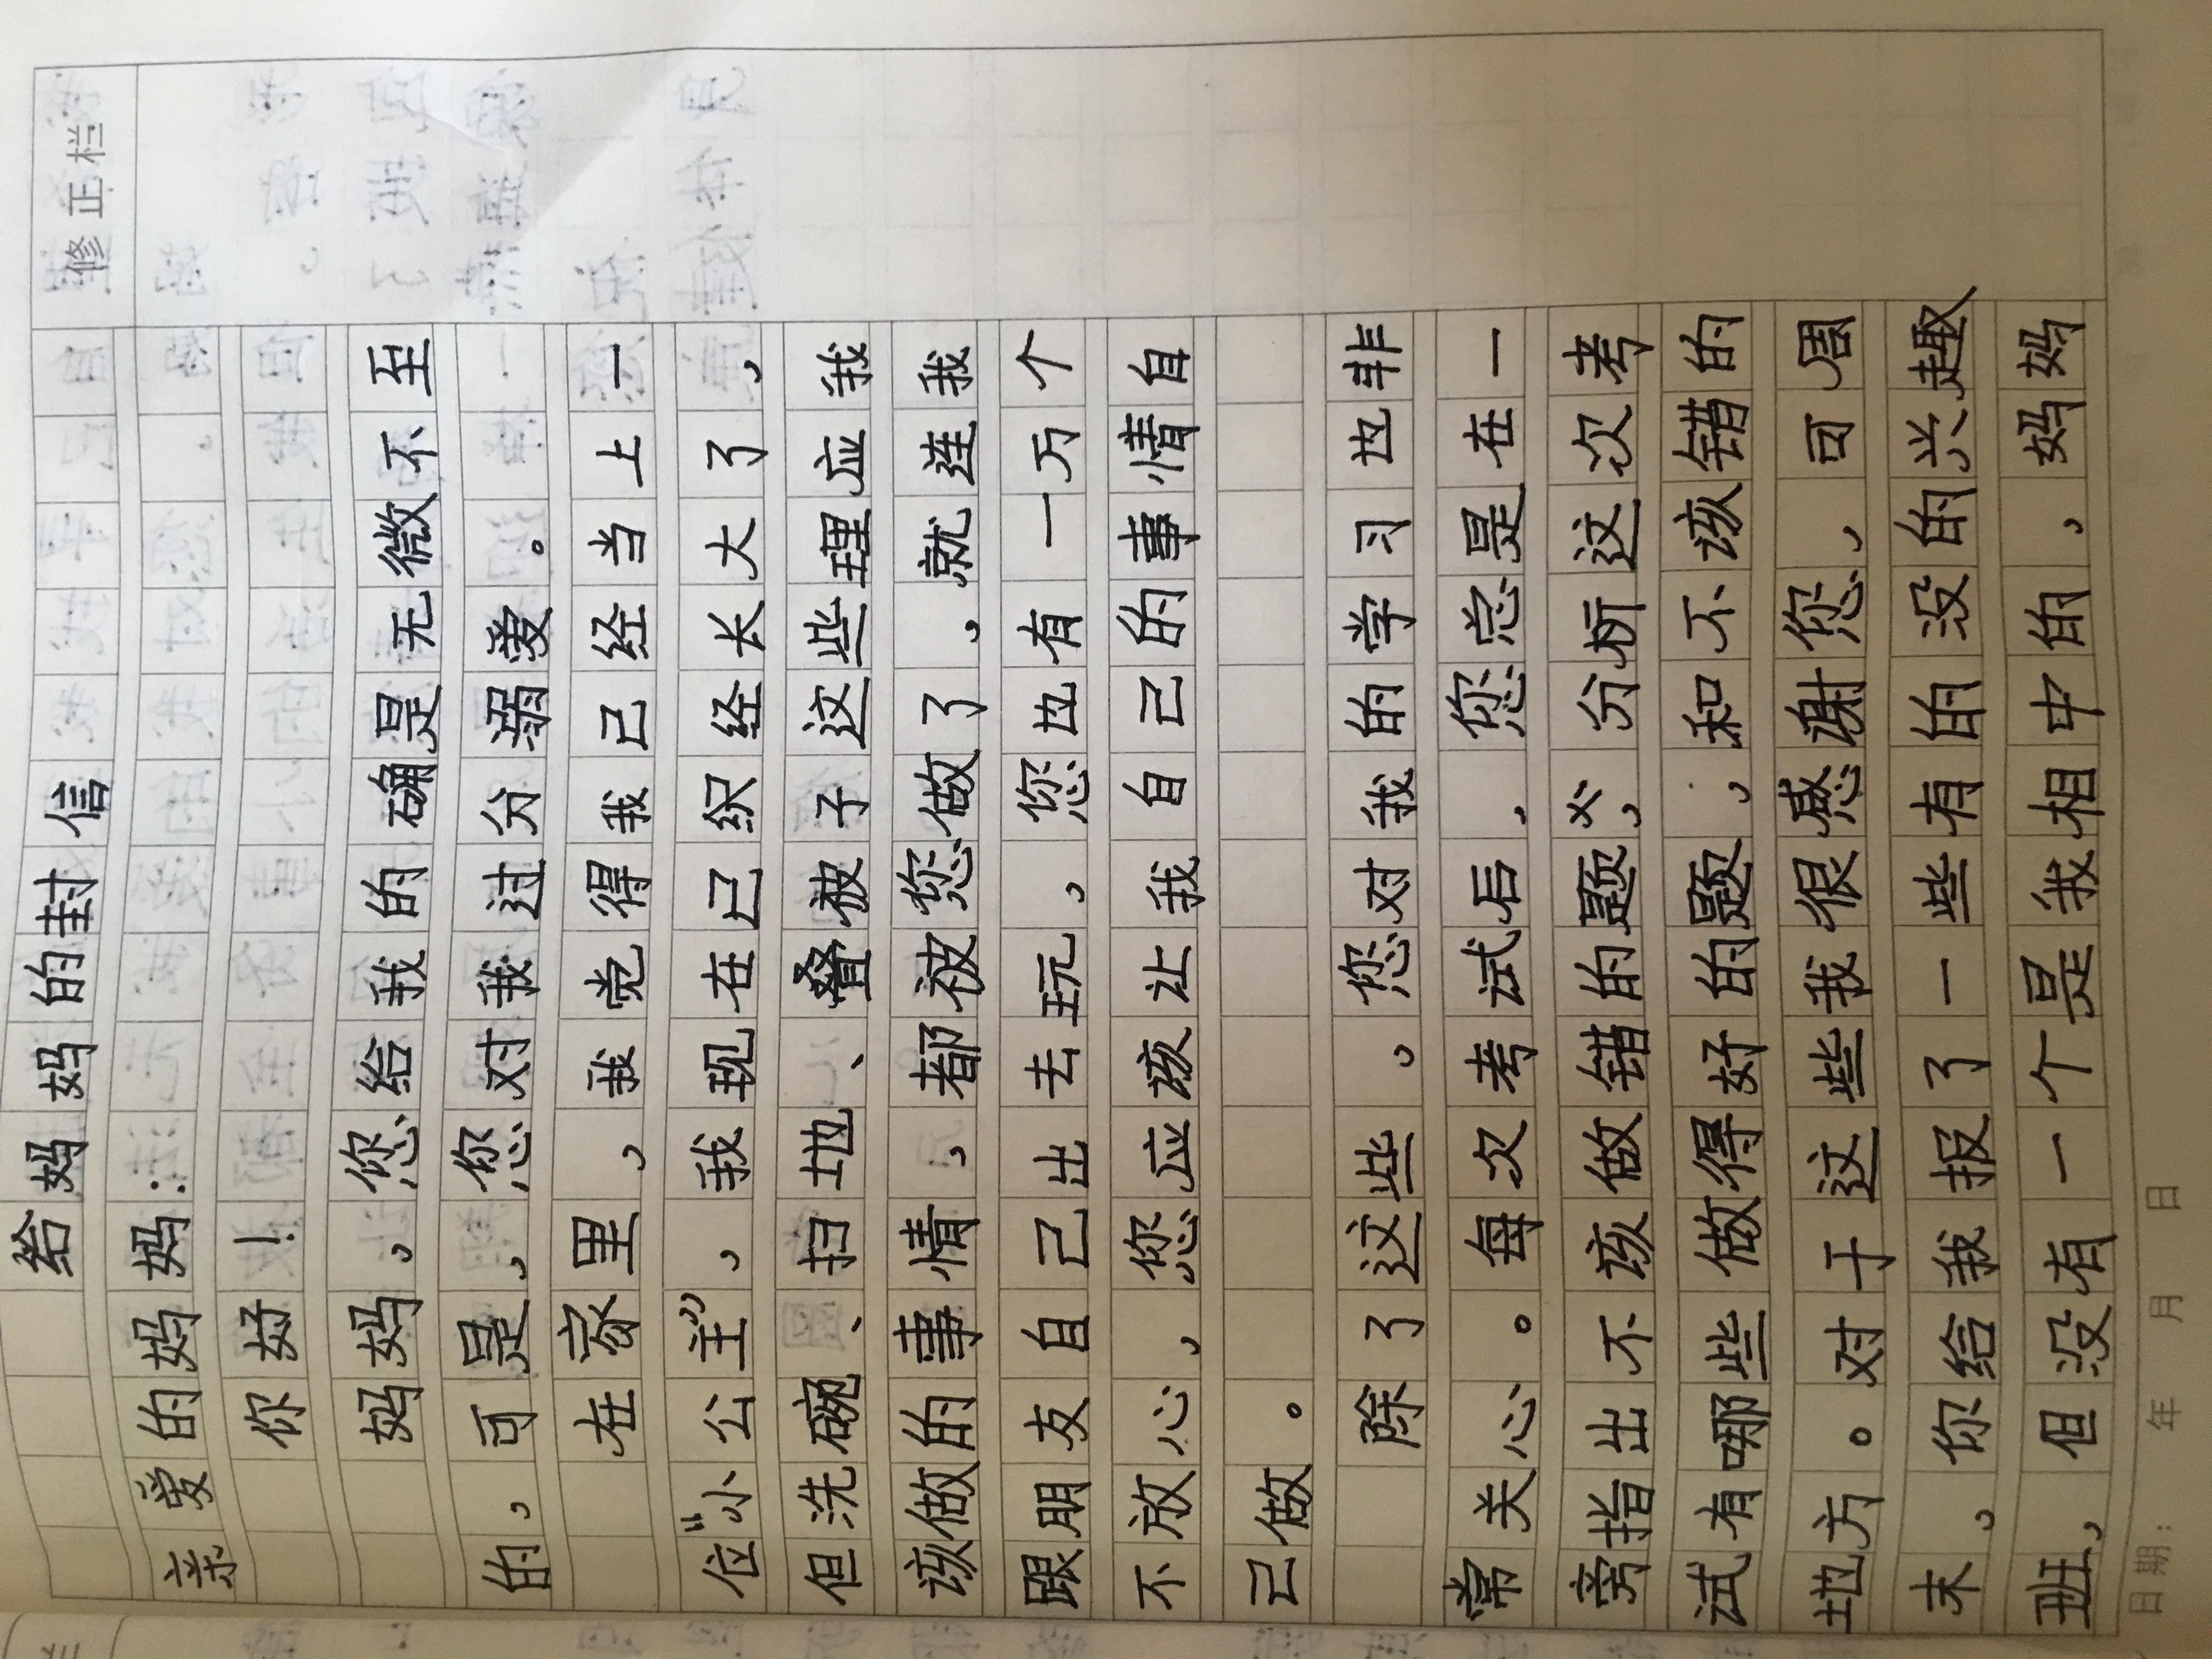 修正栏
给妈妈的封信
亲爱的妈妈:
你好!
妈妈，您给我的确是无微不至
的，可是，您对我过分溺爱。
在家里，我觉得我己经当上一
位“小公主”，我现在已织经长大了，
但洗碗、扫地、叠被子这些理应我
该做的事情，都被您做了，就连我
跟朋友自己出去玩，您也有一万个
不放心，您应该让我自己的事情自
己做。
除了这些。您对我的学习也非
常关心。每次考试后，您总是在一
旁指出不该做错的题，分析这次考
试有哪些做得好的题，和不该错的
地方。对于这些我很感谢您，回周
末，你给我报了一些有的没的兴趣
班，但没有一个是我相中的，妈妈
日期: 年 月 日